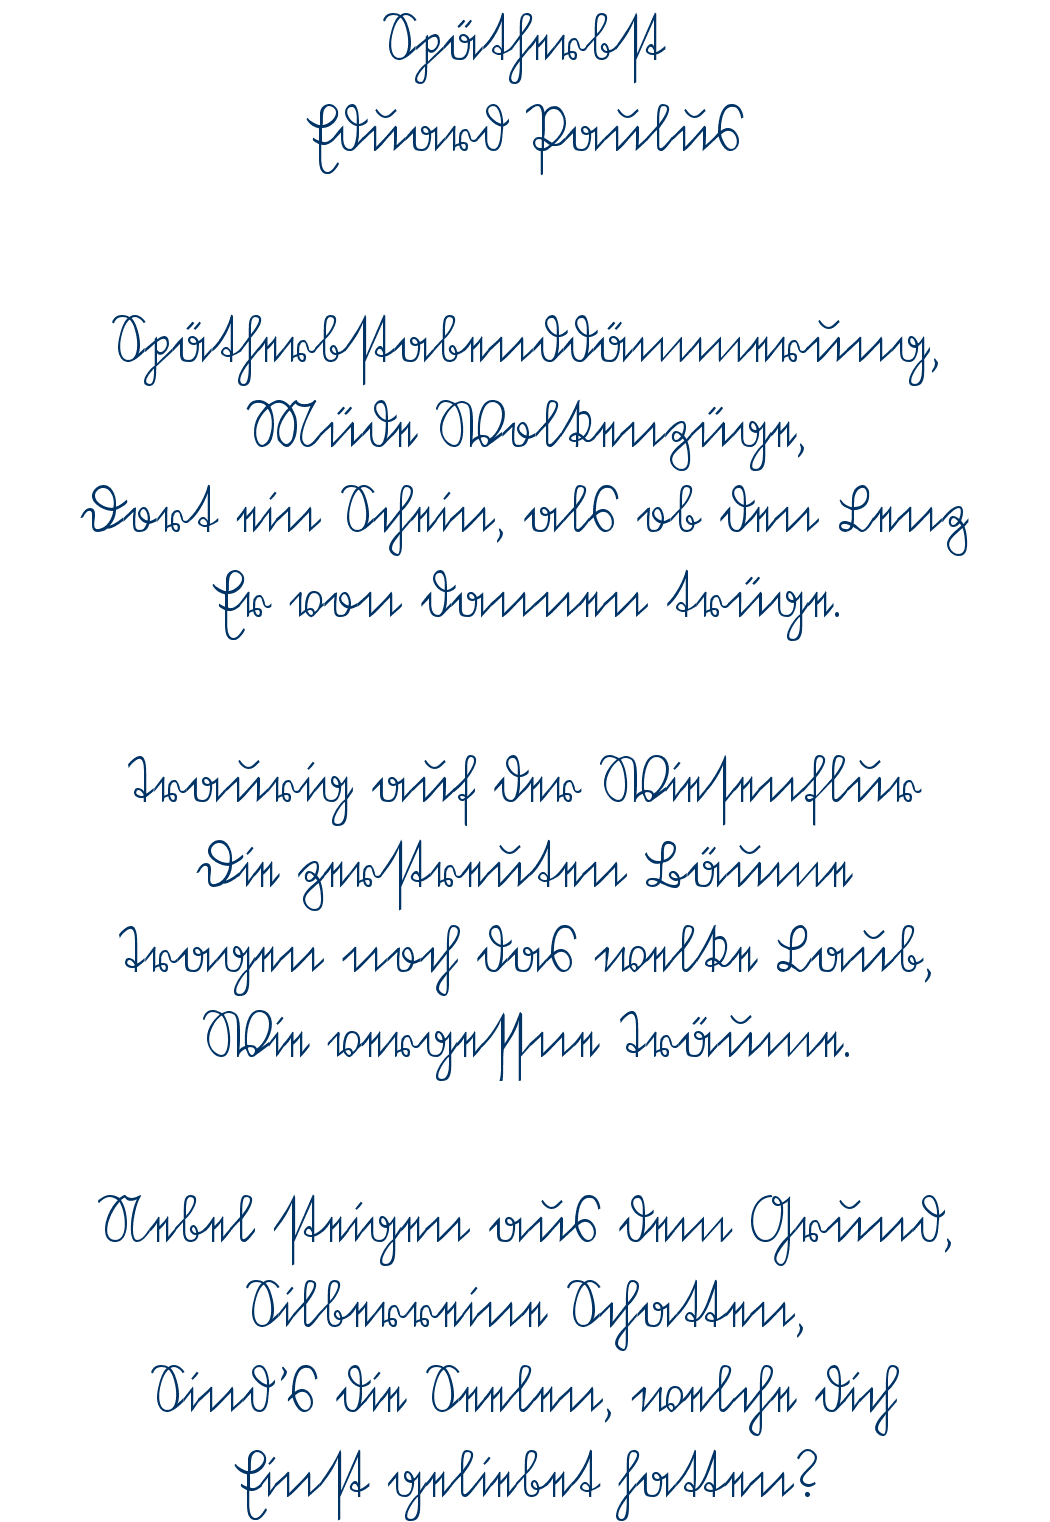 Spätherbst
Eduard Paulus
Spätherbstabenddämmerung,
Müde Wolkenzüge,
Dort ein Schein, als ob den Lenz
Er von dannen trüge.
Traurig auf der Wiesenflur
Die zerstreuten Bäume
Tragen noch das welke Laub,
Wie vergessne Träume.
Nebel steigen aus dem Grund,
Silberreine Schatten,
Sind’s die Seelen, welche dich
Einst geliebet hatten?